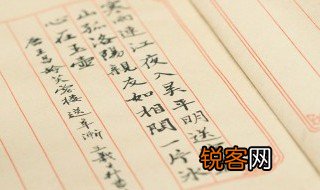 寒雨連江夜入吴平明送
山孤洛陽親友如相問一片冰
心在玉壺
唐王昌龄芙蓉楼送辛渐
锐客网